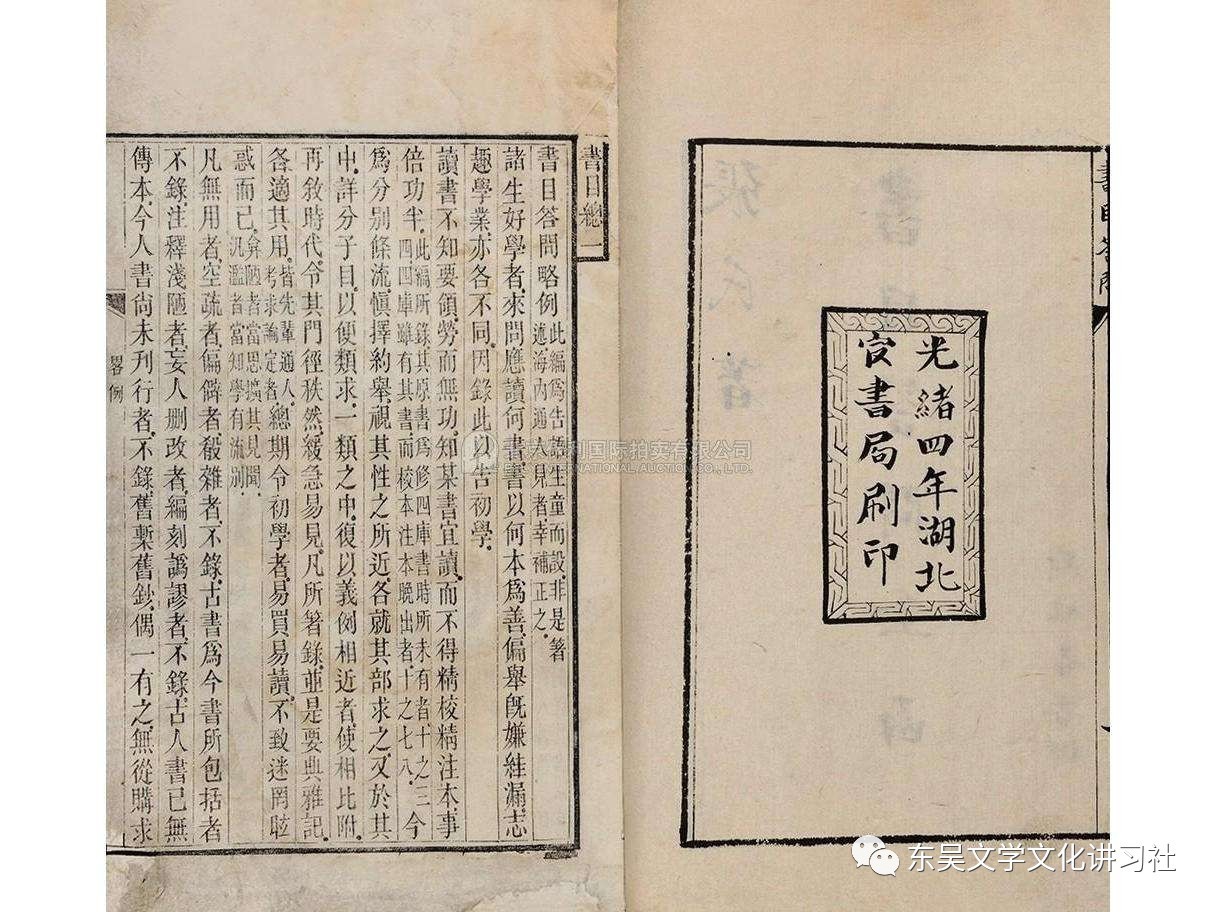 書目答問
光緒四年湖北
官書局刷印
書目總一
書目答問略例此編爲告語生童而設非是箸述海內通人見者幸補正之
諸生好學者來問應讀何書書以何本爲善偏舉旣嫌絓漏志
趣學業亦各不同因錄此以告初學
讀書不知要領勞而無功知某書宜讀而不得精校精注本事
倍功半此編所錄其原書爲修四庫書時所未有者十之三四四庫雖有其書而校本注本晚出者十之七八今
爲分別條流愼擇約舉視其性之所近各就其部求之又於其
中詳分子目以便類求一類之中復以義例相近者使相比附
再敘時代令其門徑秩然緩急易見凡所箸錄並是要典雅記
各適其用皆先輩通人考求論定者總期令初學者易買易讀不致迷罔眩
惑而已弇陋者當思擴其見聞汎濫者當知學有流別
凡無用者空疏者偏僻者殽雜者不錄古書爲今書所包括者
不錄注釋淺陋者妄人删改者編刻譌謬者不錄古人書已無
傳本今人書尚未刊行者不錄舊槧舊鈔偶一有之無從購求
畧例
利国际拍卖有限公司
INTERNATIONAL AUCTION CO., LTD.
东吴文学文化讲习社